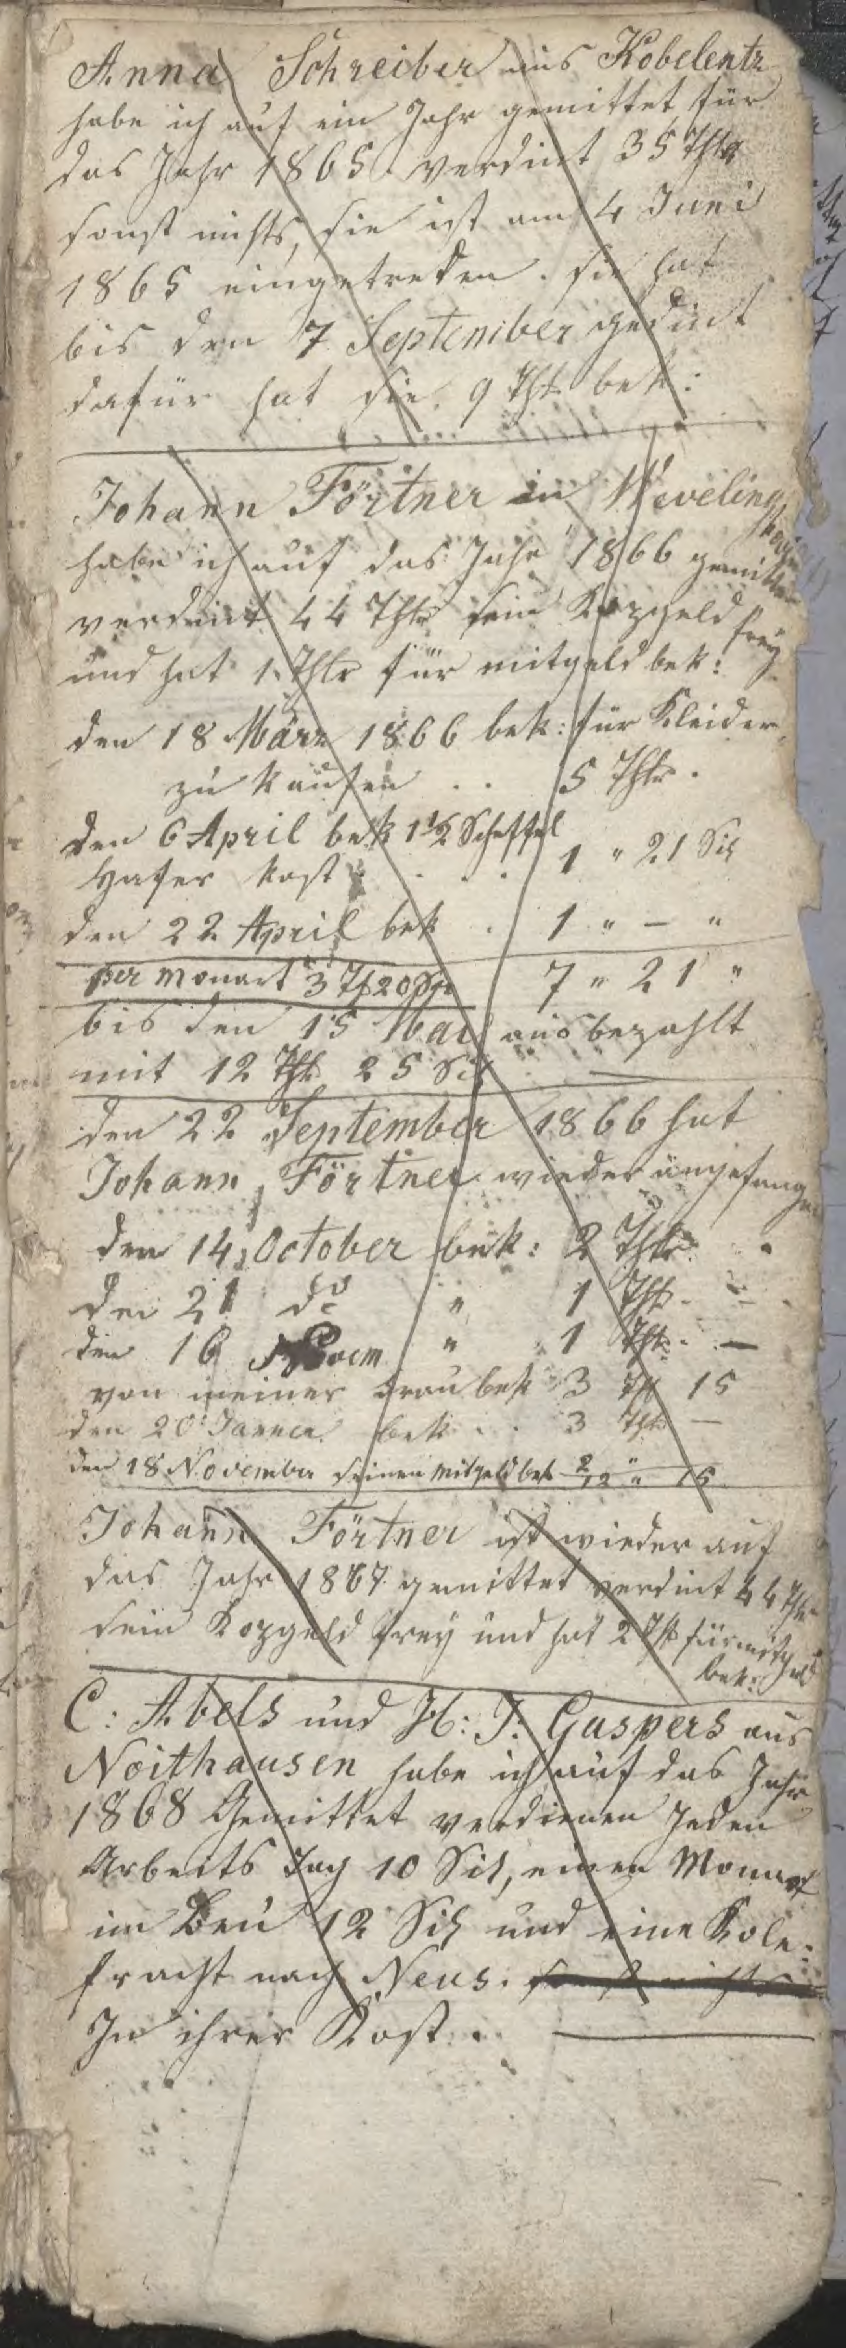 Anna Schreiber aus Kobelentz
habe ich auf ein Jahr gemittet für
das Jahr 1865. verdint 35 Thlr
sonst nichts, sie ist am 4 Juni
1865 eingetreden. sie hat
bis den 7 September gedint
dafür hat sie 9 Thlr bek:
Johann Förtner in Weveling
hoven
habe ich auf das Jahr 1866 gemittet
verdint 44 Thlr sein Kopgeld frey
und hat 1 Thlr für mitgeld bek:
den 18 März 1866 bek: für Kleider
zu kaufen . . 5 Thlr.
den 6 April bek 1 1/2 Scheffel
Hafer kost . . . 1 " 21 Sil
den 22 April bek . 1 " – "
per monart 3 Th 20 Sgr 7 " 21 "
bis den 15 Mai ausbezahlt
mit 12 Thlr 25 Sil
den 22 September 1866 hat
Johann Förtner wieder angefangen
den 14 October bek: 2 Thlr
den 21 do " 1 Thlr. –
den 16 Novem " 1 Thlr. –
von meiner Frau bek 3 Th 15
den 20 Januar bek . . 3 Thlr –
den 18 November seinen mitgeld bek 2 "
12 " 15
Johann Förtner ist wieder auf
das Jahr 1867 gemittet verdint 44 Thlr
sein Kopgeld frey und hat 2 Th für mitgeld
bek:
C: Abels und H: J: Gaspers aus
Noithausen habe ich auf das Jahr
1868 Gemittet verdienen Jeden
Arbeits Tag 10 Sil, einen Monart
im Bau 12 Sil und eine Kole:
fracht nach Neus. sonst nichts
In ihrer Kost.